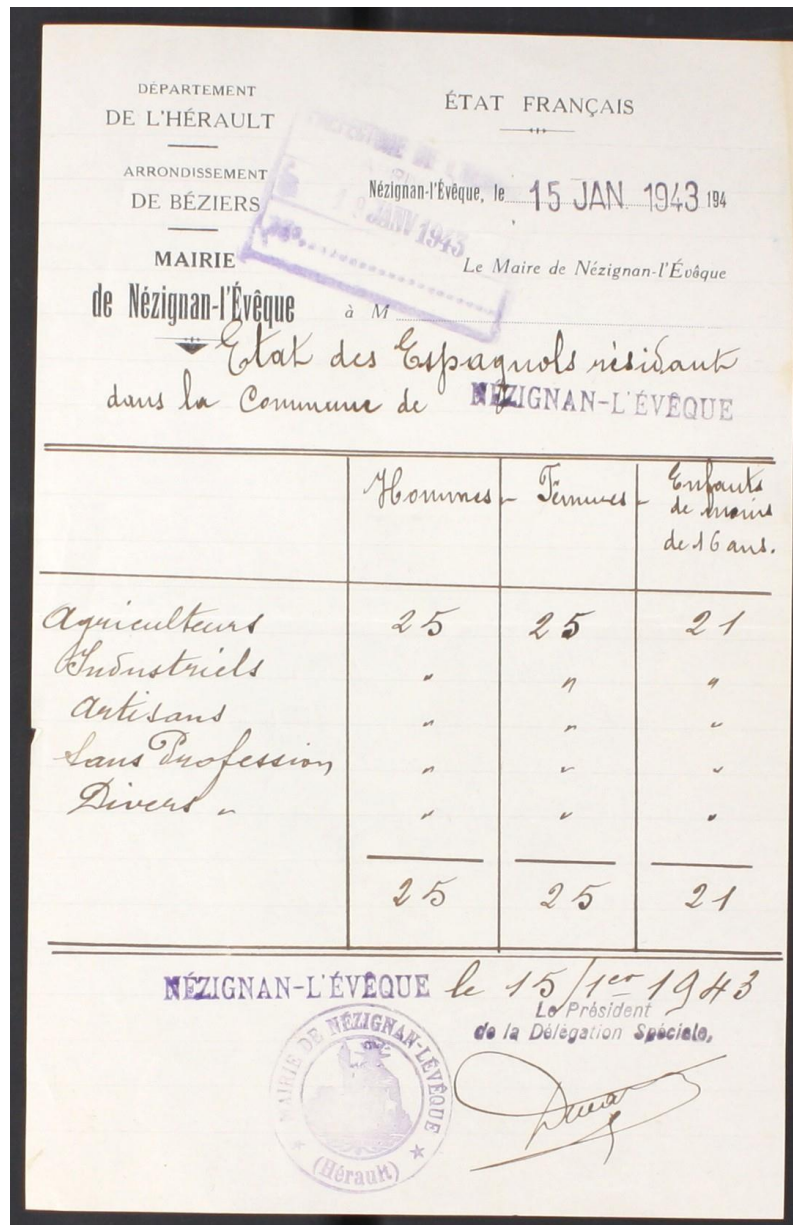 DÉPARTEMENT
DE L'HÉRAULT
ARRONDISSEMENT
DE BÉZIERS
MAIRIE
de Nézignan-l'Évêque
ÉTAT FRANÇAIS
PRÉFECTURE DE L'HÉRAULT
18 JANV 1943
Nézignan-l'Évêque, le 15 JAN. 1943 194
Le Maire de Nézignan-l'Évêque
à M
Etat des Espagnols résidant
dans la Commune de NÉZIGNAN-L'ÉVÊQUE
Hommes - Femmes - Enfants
de moins
de 16 ans.
Agriculteurs 25 25 21
Industriels " " "
Artisans " " "
Sans Profession " " "
Divers " " " "
25 25 21
NÉZIGNAN-L'ÉVÊQUE le 15/1er 1943
Le Président
de la Délégation Spéciale,
MAIRIE DE NÉZIGNAN-L'ÉVÊQUE
(Hérault)